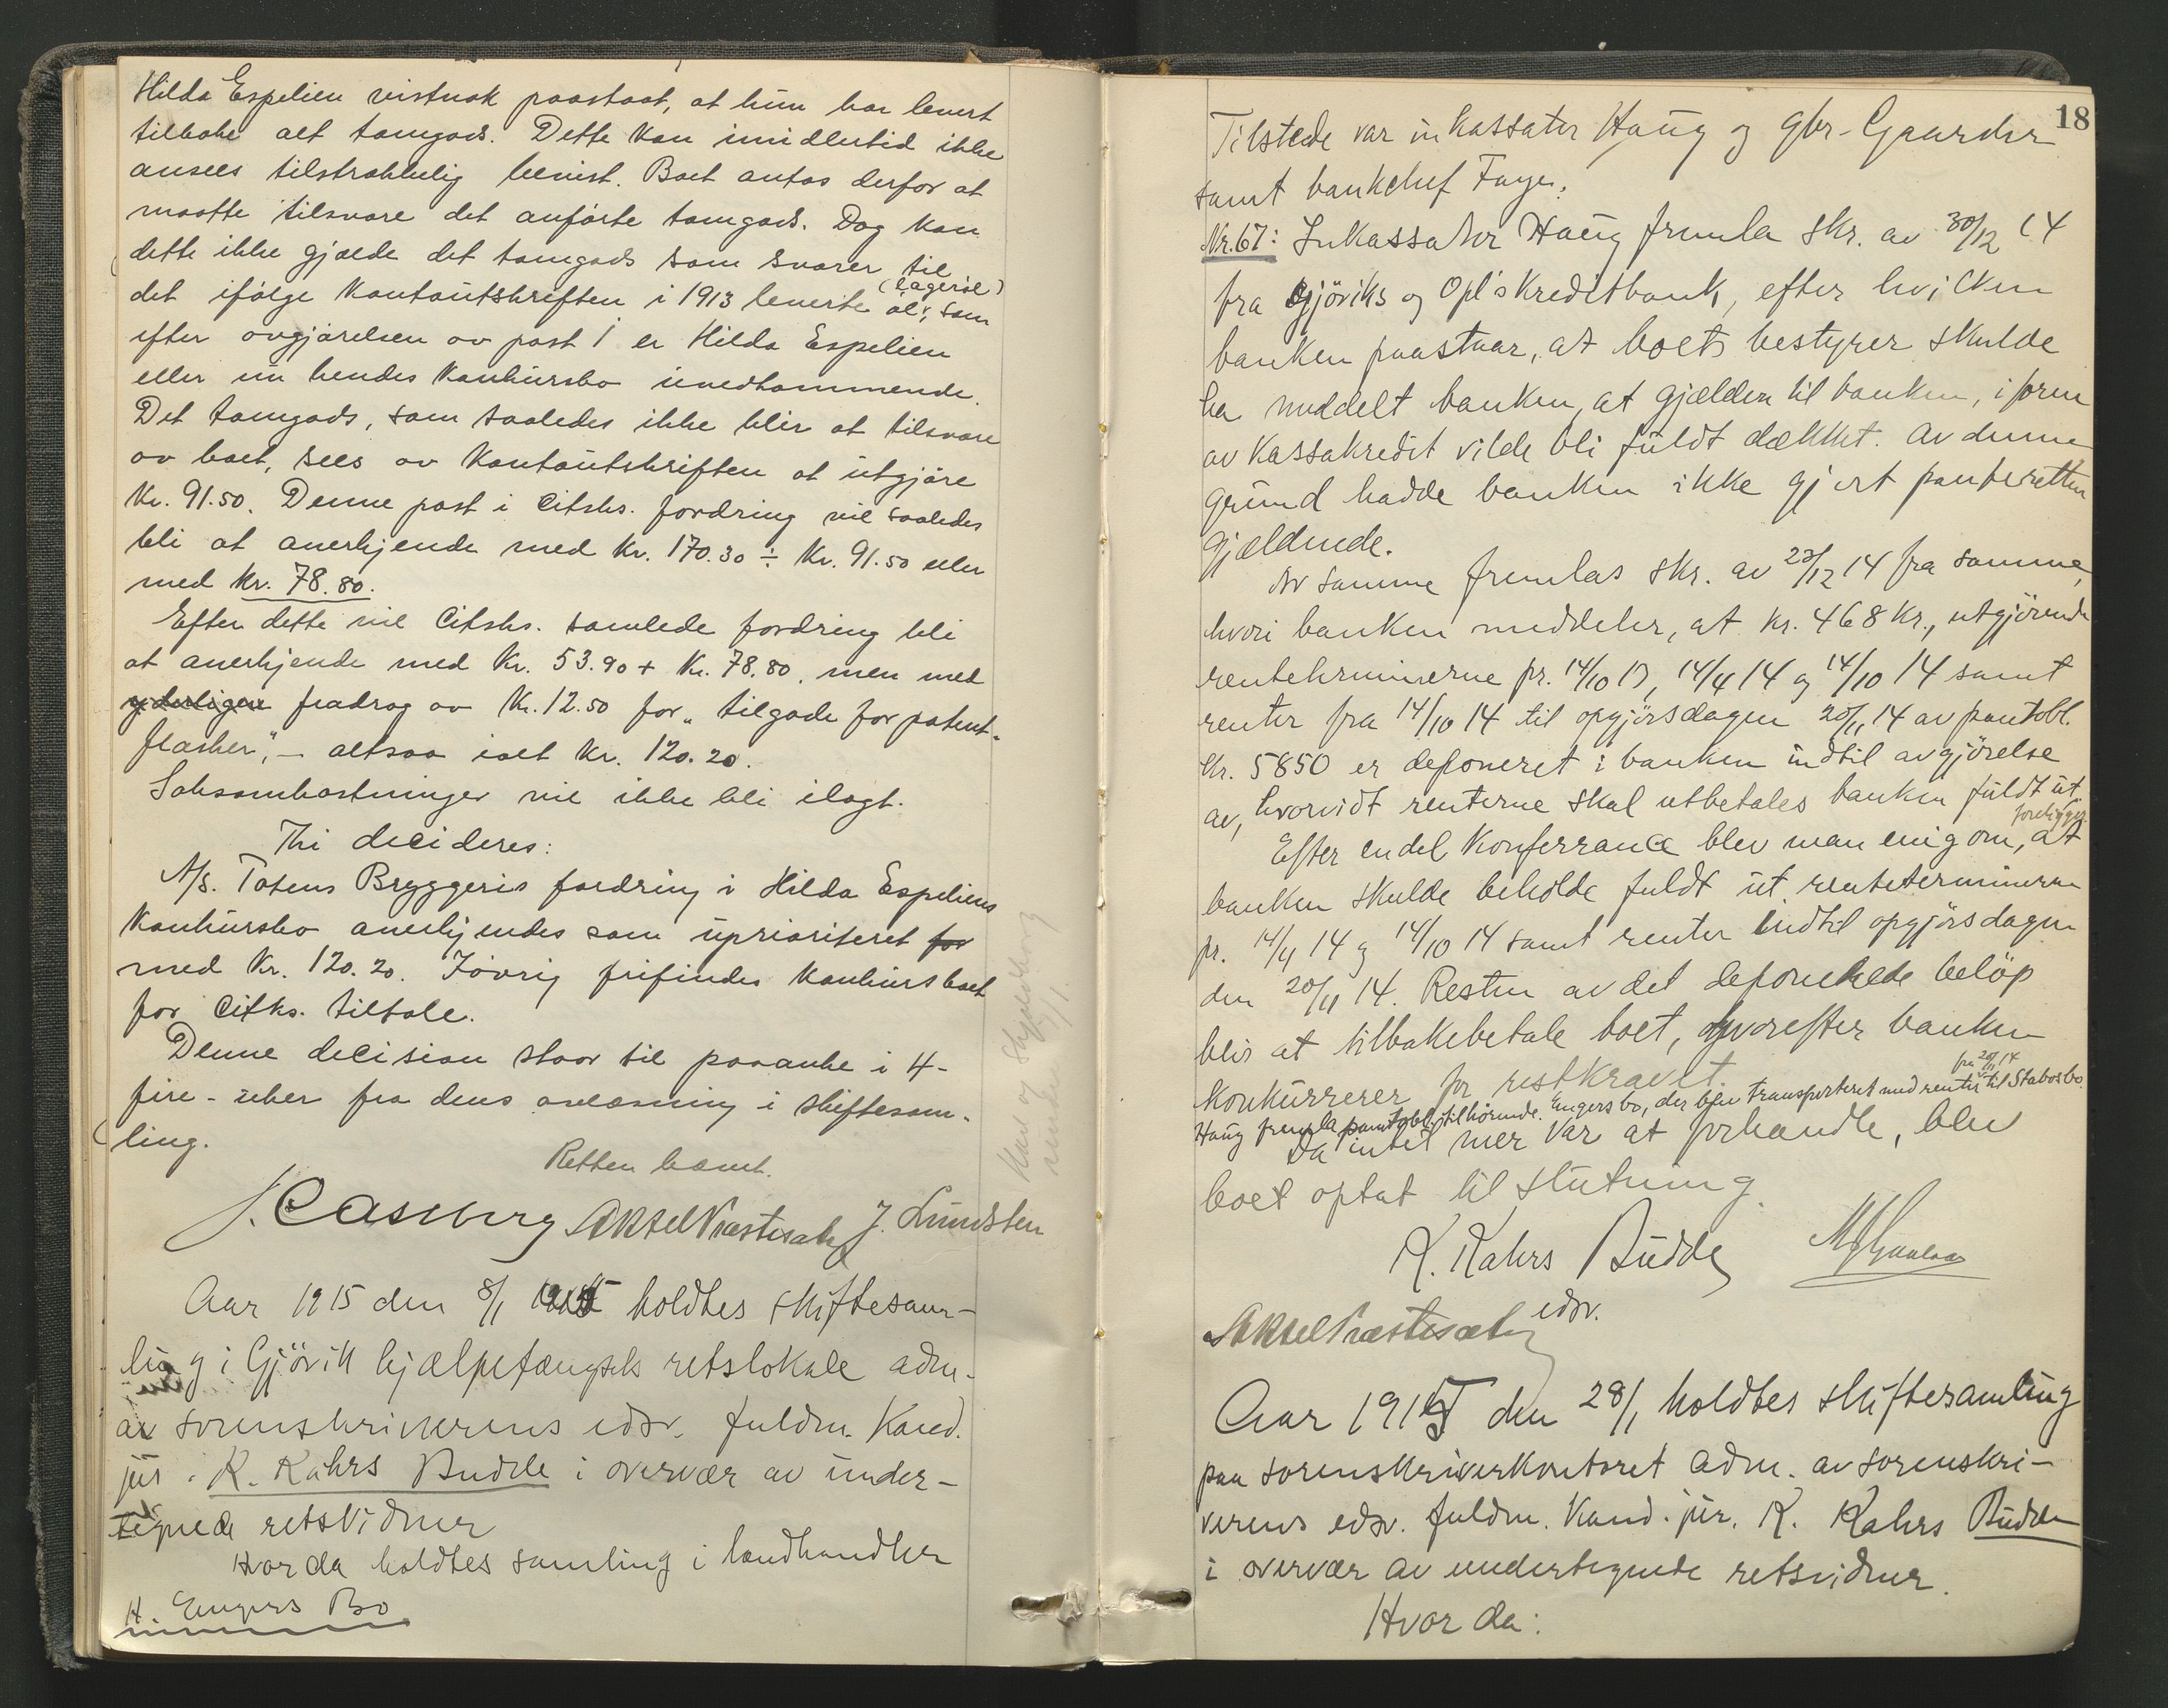 Hilda Espelien vistnok paastaat, at hun har levert
tilbake alt tomgods. Dette kan imidlertid ikke
ansees tilstrækkelig bevist. Boet antas derfor at
maatte tilsvare det anførte tomgods. Dog kan
dette ikke gjælde det tomgods som svarer til
det ifølge kontoutskriften i 1913 leverte øl (lagerøl), som
efter avgjørelsen av post 1 er Hilda Espelien
eller nu hendes konkursbo uvedkommende.
Det tomgods, som saaledes ikke blir at tilsvare
av boet, sees av kontoutskriften at utgjøre
Kr. 91.50. Denne post i Citsks. fordring vil saaledes
bli at anerkjende med Kr. 170.30 ÷ Kr. 91.50 eller
med Kr. 78.80.
Efter dette vil Citsks. samlede fordring bli
at anerkjende med Kr. 53.90 + Kr. 78.80, men med
yderligere fradrag av Kr. 12.50 for „tilgode for patent-
flasker", – altsaa ialt Kr. 120.20.
Saksomkostninger vil ikke bli ilagt.
Thi decideres:
A/S. Totens Bryggeris fordring i Hilda Espeliens
konkursbo anerkjendes som uprioriteret for
med Kr. 120.20. Iøvrig frifindes konkursboet
for Citks. tiltale.
Denne decision staar til paaanke i 4-
fire - uker fra dens avlæsning i skiftesam-
ling.
Retten hævet.
J. Castberg Aksel Præstesæter J. Lundsten
Aar 1915 den 8/1 1915 holdtes skiftesam-
ling i Gjövik hjælpefængsels retslokale adm.
av sorenskriverens edsv. fuldm. Kand.
jur. K. Kahrs Budde i overvær av under-
tegnede retsvidner
Hvor da holdtes samling i landhandler
H. Engers Bo
18
Tilstede var inkassator Haug og gbr. Gaarder
samt bankchef Faye.
Nr. 67: Inkassator Haug fremla skr. av 30/12 14
fra Gjöviks og Opl's Kreditbank, efter hvilken
banken paastaar, at boets bestyrer skulde
ha meddelt banken, at gjælden til banken, i form
av kassakredit vilde bli fuldt dækket. Av denne
grund hadde banken ikke gjort panteretten
gjældende.
Av samme fremlas skr. av 23/12 14 fra samme,
hvori banken meddeler, at kr. 468 kr., utgjörende
renteterminerne pr. 14/10 13, 14/4 14 og 14/10 14 samt
renter fra 14/10 14 til opgjörsdagen 20/11 14 av pantobl.
Kr. 5850 er deponeret i banken indtil avgjörelse
av, hvorvidt renterne skal utbetales banken fuldt ut
foreligger.
Efter endel Konferrance blev man enig om, at
banken skulde beholde fuldt ut renteterminerne
pr. 14/4 14 og 14/10 14 samt renter indtil opgjörsdagen
den 20/11 14. Resten av det deponerede belöp
blir at tilbakebetale boet, hvorefter banken
konkurrerer for restkravet.
Haug fremla pantobl. tilhörende Engers bo, der blev transporteret med renter fra 20/11 14 til Stabos bo.
Da intet mer var at forhandle, blev
boet optat til slutning.
K. Kahrs Budde
edsv.
Aksel Præstesæter
Aar 1915 den 28/1 holdtes skiftesamling
paa sorenskriverkontoret adm. av sorenskri-
verens edsv. fuldm. Kand. jur. K. Kahrs Budde
i overvær av undertegnede retsvidner.
Hvor da: